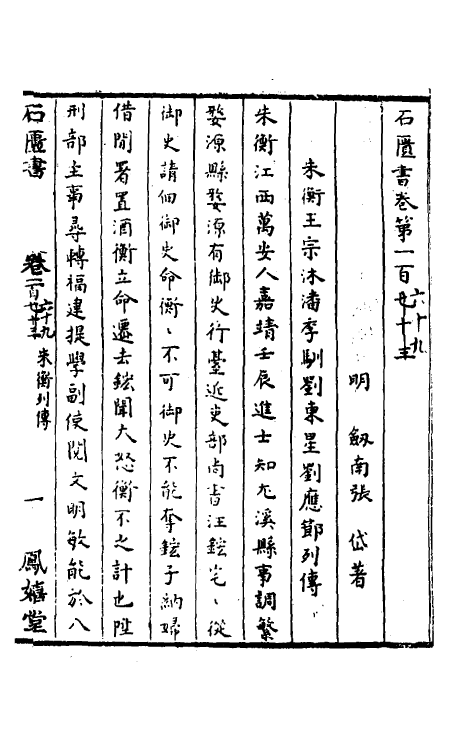 石匱書卷第一百六十九
明 劔南張 岱著
朱衡王宗沐潘季馴劉東星劉應節列傳
朱衡江西萬安人嘉靖壬辰進士知尤溪縣事調繁
婺源縣婺源有御史行臺近吏部尚書汪鋐宅、從
御史請佃御史命衡、不可御史不能奪鋐子納婦
借閒署置酒衡立命遷去鋐聞大怒衡不之計也陞
刑部主事尋轉福建提學副使閱文明敏能於八
石匱書 卷一百六十九 朱衡列傳 一 鳳嬉堂